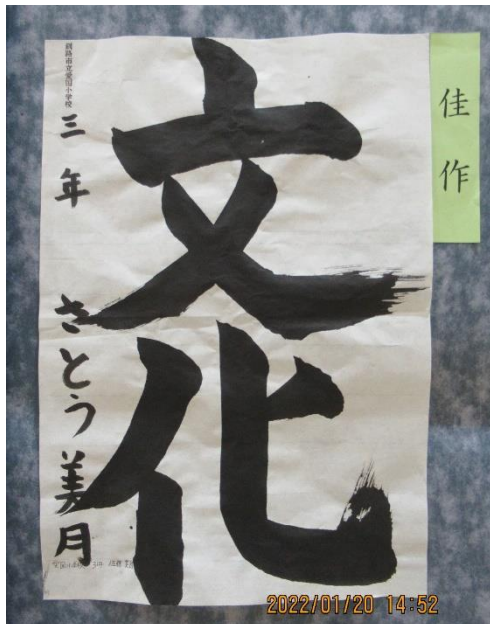 佳作
文化
釧路市立愛国小学校
三年 さとう美月
2022/01/20 14:52